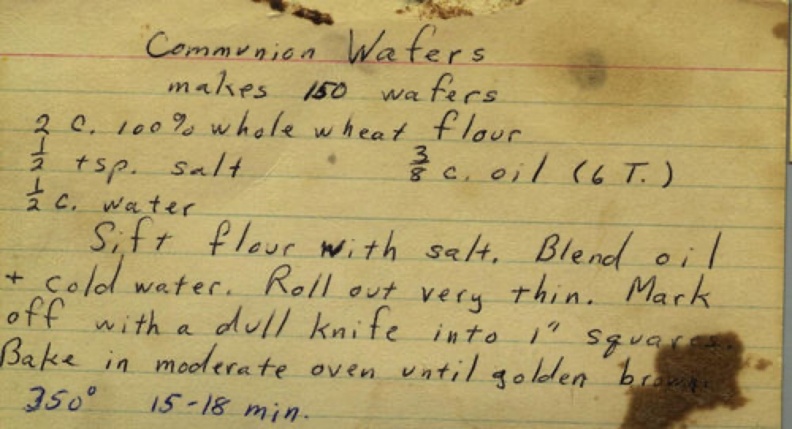 Communion Wafers
makes 150 wafers
2 c. 100% whole wheat flour
1/2 tsp. salt 3/8 c. oil (6 T.)
1/2 c. water
Sift flour with salt. Blend oil
+ cold water. Roll out very thin. Mark
off with a dull knife into 1" squares.
Bake in moderate oven until golden brown.
350° 15-18 min.